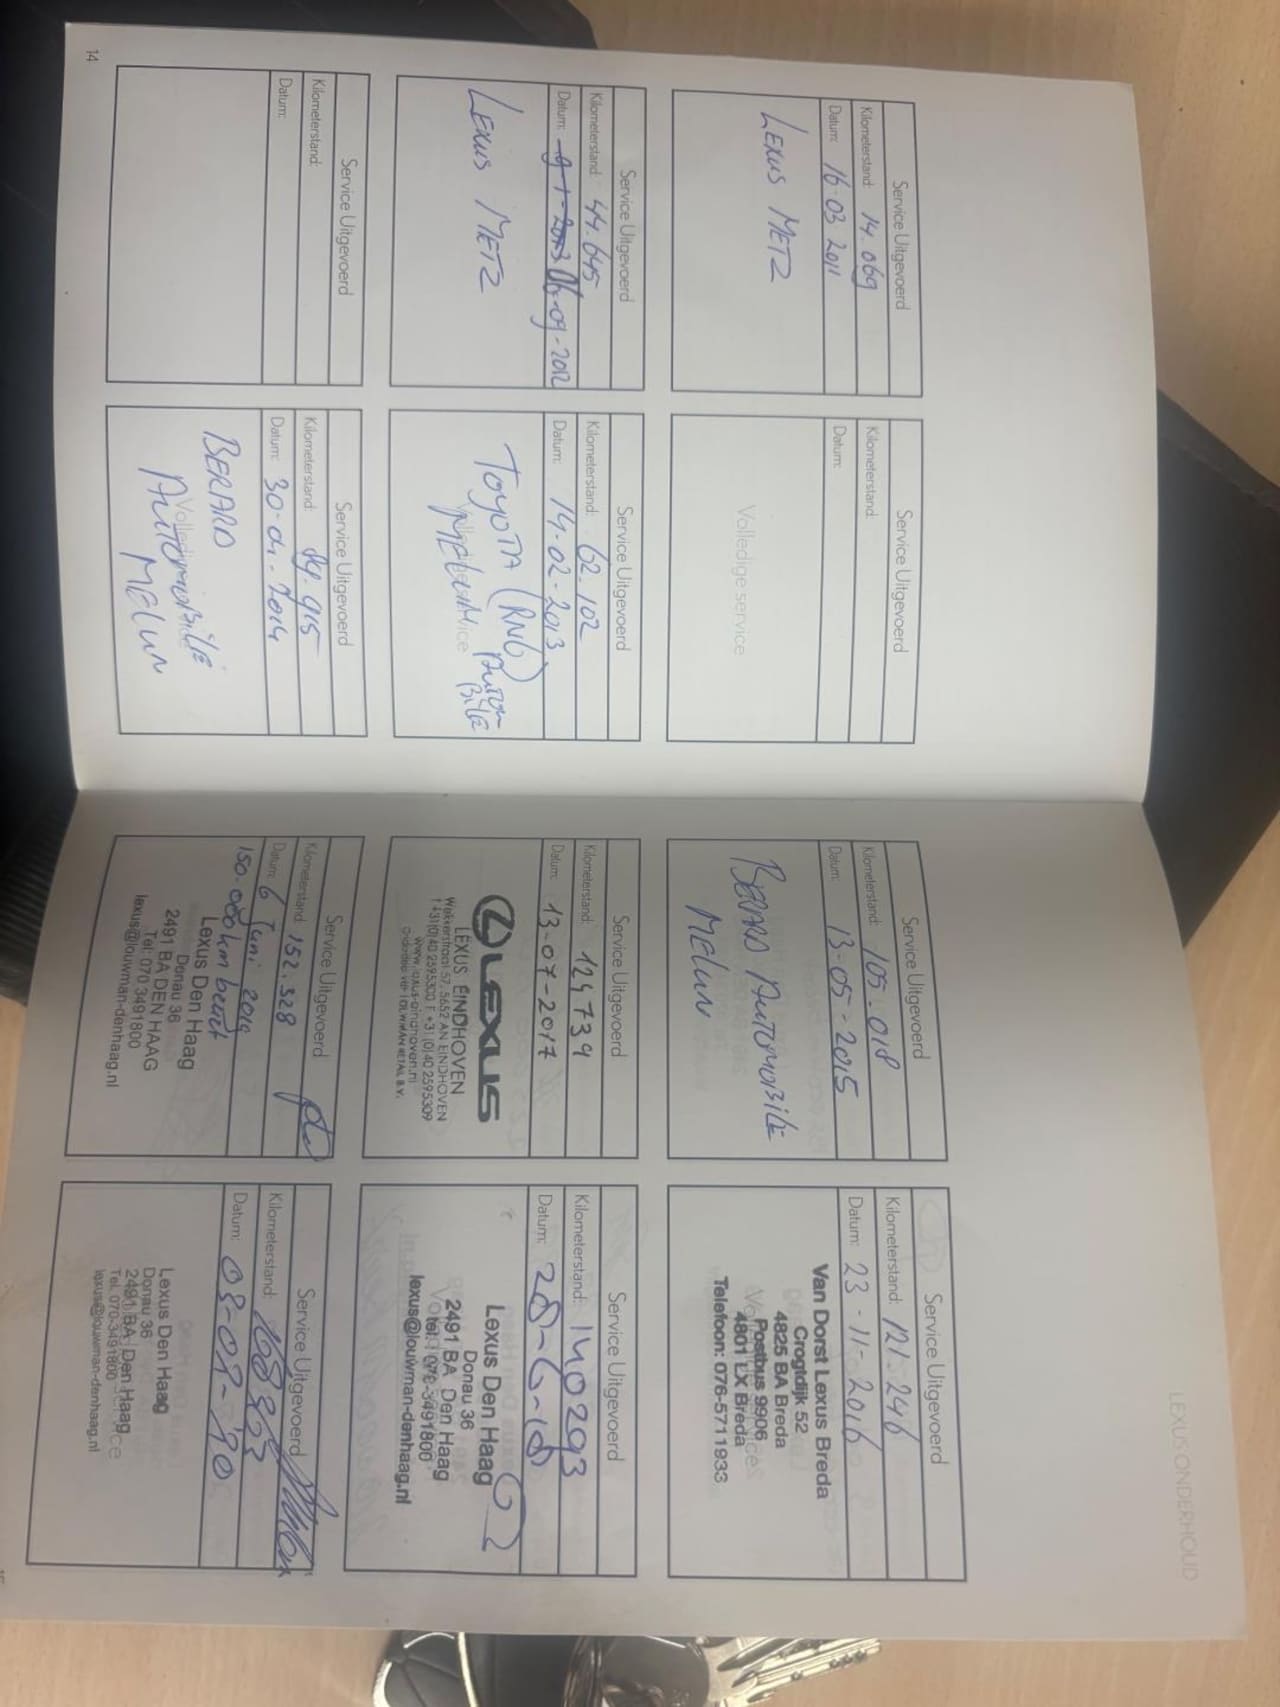 LEXUS ONDERHOUD
Service Uitgevoerd
Kilometerstand: 14.069
Datum: 16-03 2011
LEXUS METZ
Service Uitgevoerd
Kilometerstand:
Datum:
Volledige service
Service Uitgevoerd
Kilometerstand: 44.645
Datum: 06-09-2012
LEXUS METZ
Service Uitgevoerd
Kilometerstand: 62.102
Datum: 14-02-2013
TOYOTA (RN6)
Service Uitgevoerd
Kilometerstand:
Datum:
Service Uitgevoerd
Kilometerstand: 89.915
Datum: 30-01-2014
BERARD
AUTOMOBILE
MELUN
14
Service Uitgevoerd
Kilometerstand: 105.018
Datum: 13-05-2015
BERARD AUTOMOBILE
MELUN
Service Uitgevoerd
Kilometerstand: 121.246
Datum: 23-11-2016
Van Dorst Lexus Breda
Crogtdijk 52
4825 BA Breda
Postbus 9906
4801 LX Breda
Telefoon: 076-5711933
Service Uitgevoerd
Kilometerstand: 124739
Datum: 13-07-2017
LEXUS
LEXUS EINDHOVEN
Wekkerstraat 57, 5652 AN EINDHOVEN
T +31(0)40 2595300 F +31(0)40 2595309
www.lexus-eindhoven.nl
Service Uitgevoerd
Kilometerstand: 140293
Datum: 28-6-18
Lexus Den Haag
Donau 36
2491 BA Den Haag
tel: 070-3491800
lexus@louwman-denhaag.nl
Service Uitgevoerd
Kilometerstand: 152.328
Datum: 6 Juni 2019
150.000km beurt
Lexus Den Haag
Donau 36
2491 BA DEN HAAG
Tel: 070 3491800
lexus@louwman-denhaag.nl
Service Uitgevoerd
Kilometerstand: 168353
Datum: 03-08-'20
Lexus Den Haag
Donau 36
2491 BA Den Haag
Tel. 070-3491800
lexus@louwman-denhaag.nl